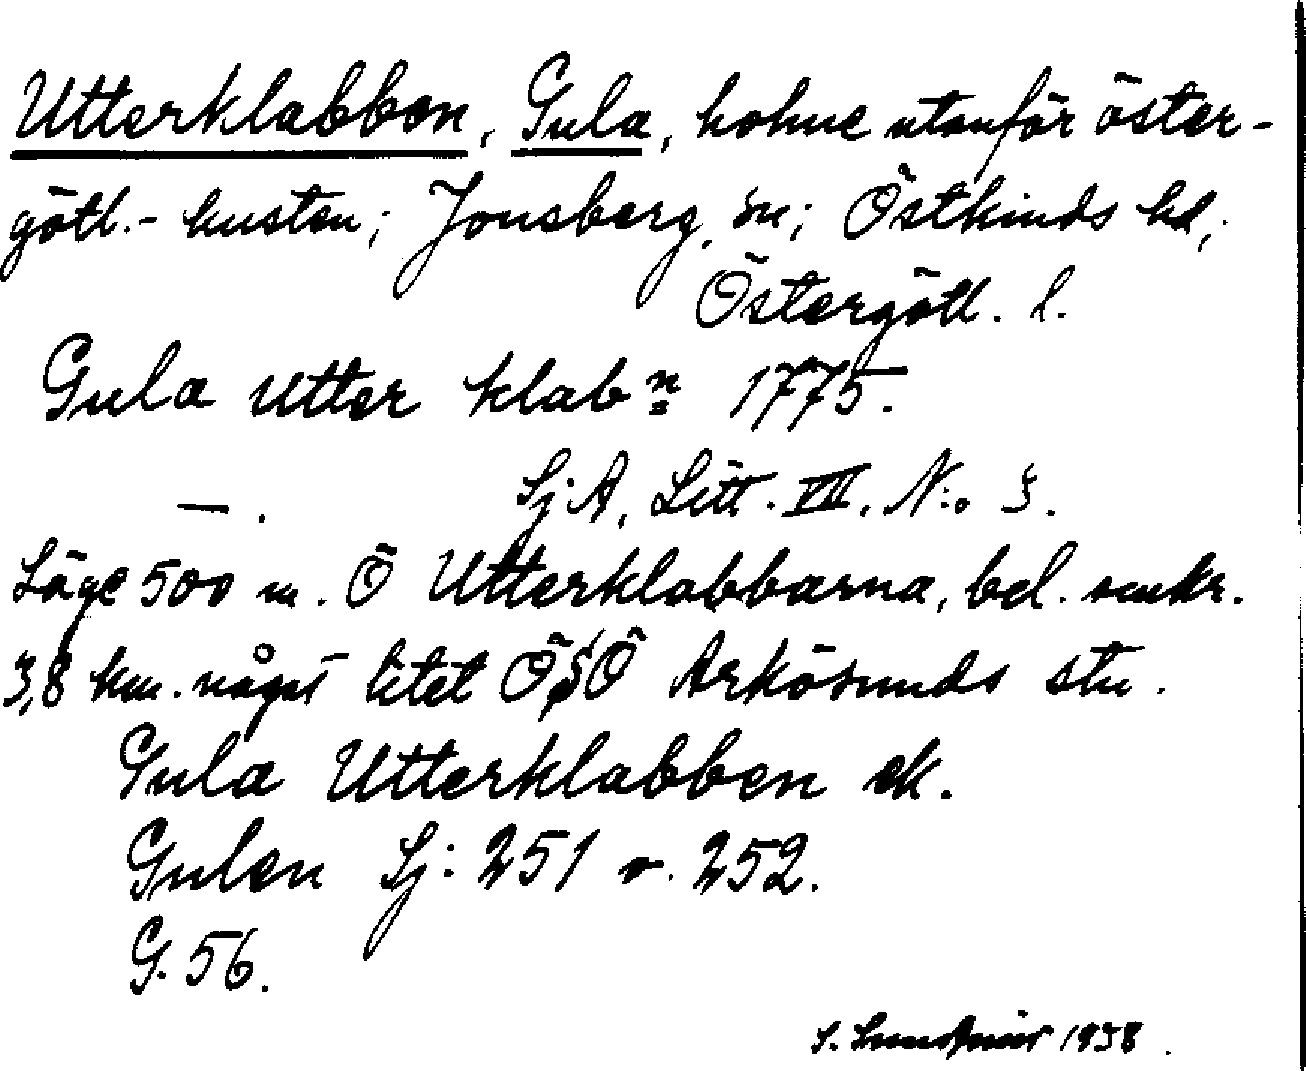 Utterklabben, Gula, holme utanför öster-
götl.- kusten; Jonsberg, sn; Östkinds hd,
Östergötl. l.
Gula utter klabn 1775.
— . Sj:A, Litt. VII, N:o 5.
Läge 500 m. Ö Utterklabbarna, bel. omkr.
3,8 km. något litet ÖSÖ Arkösunds stn.
Gula Utterklabben ek.
Gulen Sj: 251 o. 252.
G. 56.
S. 1938.